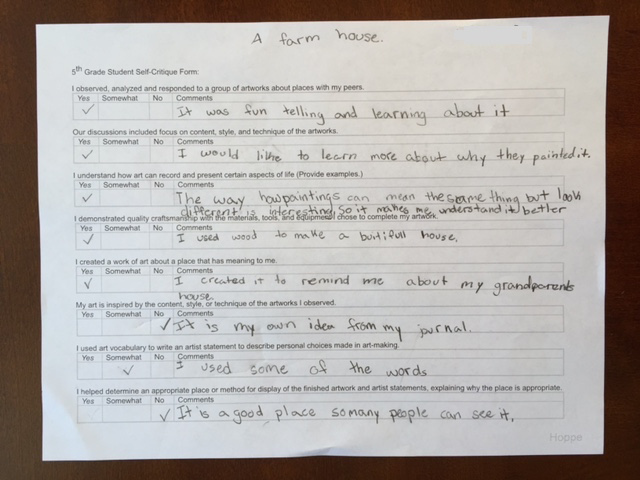 A farm house.
5th Grade Student Self-Critique Form:
I observed, analyzed and responded to a group of artworks about places with my peers.
Yes Somewhat No Comments
✓ It was fun telling and learning about it
Our discussions included focus on content, style, and technique of the artworks.
Yes Somewhat No Comments
✓ I would lihe to learn more about why they painted it.
I understand how art can record and present certain aspects of life (Provide examples.)
Yes Somewhat No Comments
✓ The way how paintings can mean the same thing but look
different is interesting so it makes me understand it better
I demonstrated quality craftsmanship with the materials, tools, and equipment I chose to complete my artwork.
Yes Somewhat No Comments
✓ I used wood to make a buitifull house.
I created a work of art about a place that has meaning to me.
Yes Somewhat No Comments
✓ I created it to remind me about my grandparents
house.
My art is inspired by the content, style, or technique of the artworks I observed.
Yes Somewhat No Comments
✓ It is my own idea from my journal.
I used art vocabulary to write an artist statement to describe personal choices made in art-making.
Yes Somewhat No Comments
✓ I used some of the words
I helped determine an appropriate place or method for display of the finished artwork and artist statements, explaining why the place is appropriate.
Yes Somewhat No Comments
✓ It is a good place so many people can see it.
Hoppe